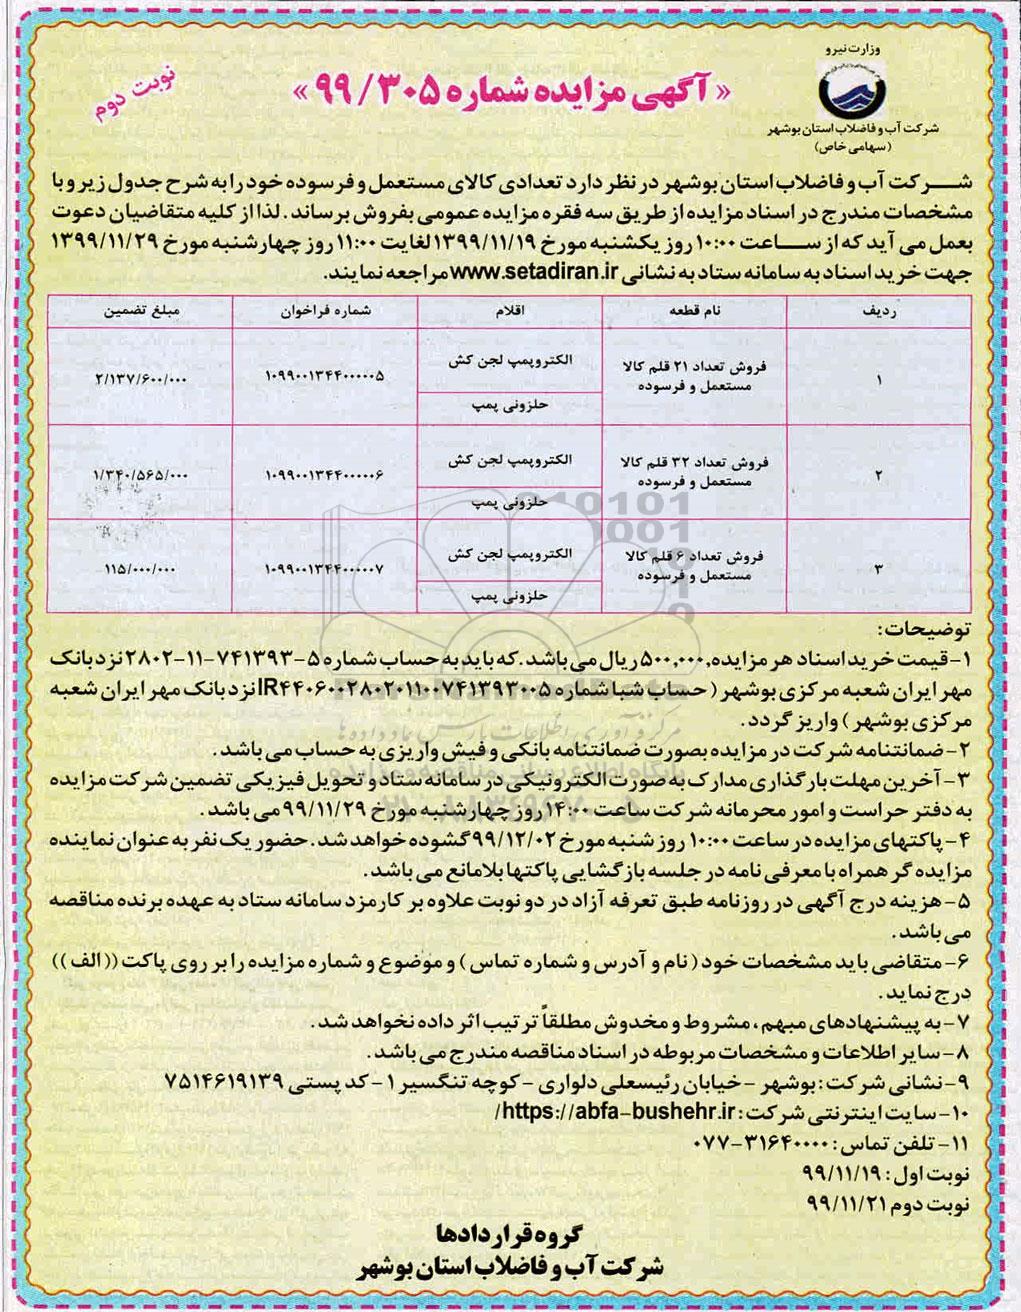 وزارت نیرو
شرکت آب و فاضلاب استان بوشهر
(سهامی خاص)
« آگهی مزایده شماره ۹۹/۳۰۵ »
نوبت دوم
شرکت آب و فاضلاب استان بوشهر در نظر دارد تعدادی کالای مستعمل و فرسوده خود را به شرح جدول زیر و با
مشخصات مندرج در اسناد مزایده از طریق سه فقره مزایده عمومی بفروش برساند. لذا از کلیه متقاضیان دعوت
بعمل می آید که از ساعت ۱۰:۰۰ روز یکشنبه مورخ ۱۳۹۹/۱۱/۱۹ لغایت ۱۱:۰۰ روز چهارشنبه مورخ ۱۳۹۹/۱۱/۲۹
جهت خرید اسناد به سامانه ستاد به نشانی www.setadiran.ir مراجعه نمایند.
ردیف	نام قطعه	اقلام	شماره فراخوان	مبلغ تضمین
۱	فروش تعداد ۲۱ قلم کالا	الکتروپمپ لجن کش	۱۰۹۹۰۰۱۳۴۴۰۰۰۰۰۵	۲/۱۳۷/۶۰۰/۰۰۰
مستعمل و فرسوده	حلزونی پمپ
۲	فروش تعداد ۳۲ قلم کالا	الکتروپمپ لجن کش	۱۰۹۹۰۰۱۳۴۴۰۰۰۰۰۶	۱/۳۴۰/۵۶۵/۰۰۰
مستعمل و فرسوده	حلزونی پمپ
۳	فروش تعداد ۶ قلم کالا	الکتروپمپ لجن کش	۱۰۹۹۰۰۱۳۴۴۰۰۰۰۰۷	۱۱۵/۰۰۰/۰۰۰
مستعمل و فرسوده	حلزونی پمپ
توضیحات:
۱- قیمت خرید اسناد هر مزایده ۵۰۰,۰۰۰ ریال می باشد. که باید به حساب شماره ۵-۷۴۱۳۹۳-۱۱-۲۸۰۲ نزد بانک
مهر ایران شعبه مرکزی بوشهر (حساب شبا شماره IR۴۴۰۶۰۰۲۸۰۲۰۱۱۰۰۷۴۱۳۹۳۰۰۵ نزد بانک مهر ایران شعبه
مرکزی بوشهر) واریز گردد.
۲- ضمانتنامه شرکت در مزایده بصورت ضمانتنامه بانکی و فیش واریزی به حساب می باشد.
۳- آخرین مهلت بارگذاری مدارک به صورت الکترونیکی در سامانه ستاد و تحویل فیزیکی تضمین شرکت مزایده
به دفتر حراست و امور محرمانه شرکت ساعت ۱۴:۰۰ روز چهارشنبه مورخ ۹۹/۱۱/۲۹ می باشد.
۴- پاکتهای مزایده در ساعت ۱۰:۰۰ روز شنبه مورخ ۹۹/۱۲/۰۲ گشوده خواهد شد. حضور یک نفر به عنوان نماینده
مزایده گر همراه با معرفی نامه در جلسه بازگشایی پاکتها بلامانع می باشد.
۵- هزینه درج آگهی در روزنامه طبق تعرفه آزاد در دو نوبت علاوه بر کارمزد سامانه ستاد به عهده برنده مناقصه
می باشد.
۶- متقاضی باید مشخصات خود (نام و آدرس و شماره تماس) و موضوع و شماره مزایده را بر روی پاکت ((الف))
درج نماید.
۷- به پیشنهادهای مبهم، مشروط و مخدوش مطلقاً ترتیب اثر داده نخواهد شد.
۸- سایر اطلاعات و مشخصات مربوطه در اسناد مناقصه مندرج می باشد.
۹- نشانی شرکت: بوشهر - خیابان رئیسعلی دلواری - کوچه تنگسیر ۱ - کد پستی ۷۵۱۴۶۱۹۱۳۹
۱۰- سایت اینترنتی شرکت: https://abfa-bushehr.ir/
۱۱- تلفن تماس: ۰۷۷-۳۱۶۴۰۰۰۰
نوبت اول: ۹۹/۱۱/۱۹
نوبت دوم ۹۹/۱۱/۲۱
گروه قراردادها
شرکت آب و فاضلاب استان بوشهر